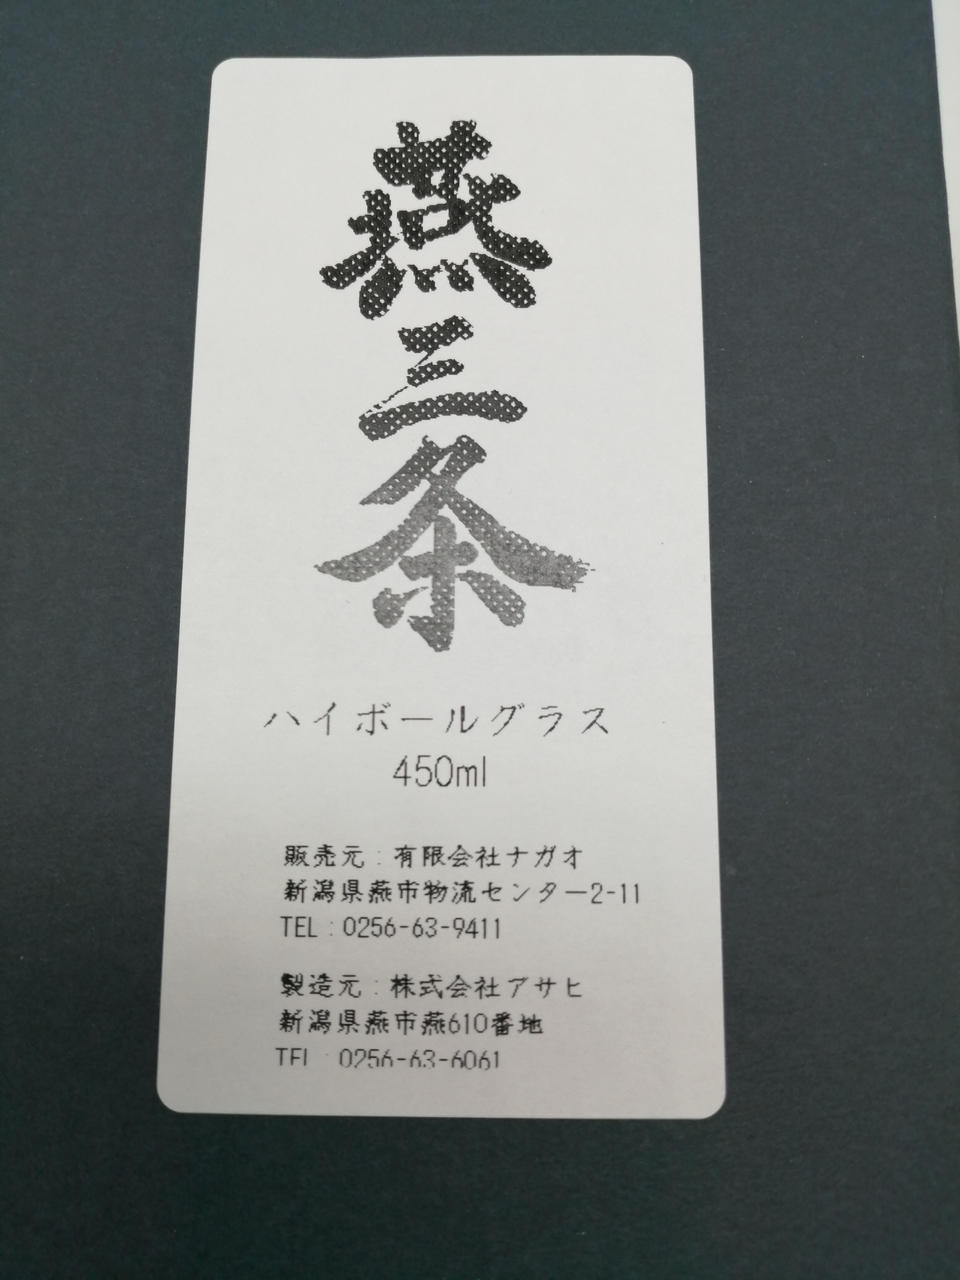 燕三条
ハイボールグラス
450ml
販売元：有限会社ナガオ
新潟県燕市物流センター2-11
TEL：0256-63-9411
製造元：株式会社アサヒ
新潟県燕市燕610番地
TEL：0256-63-6061